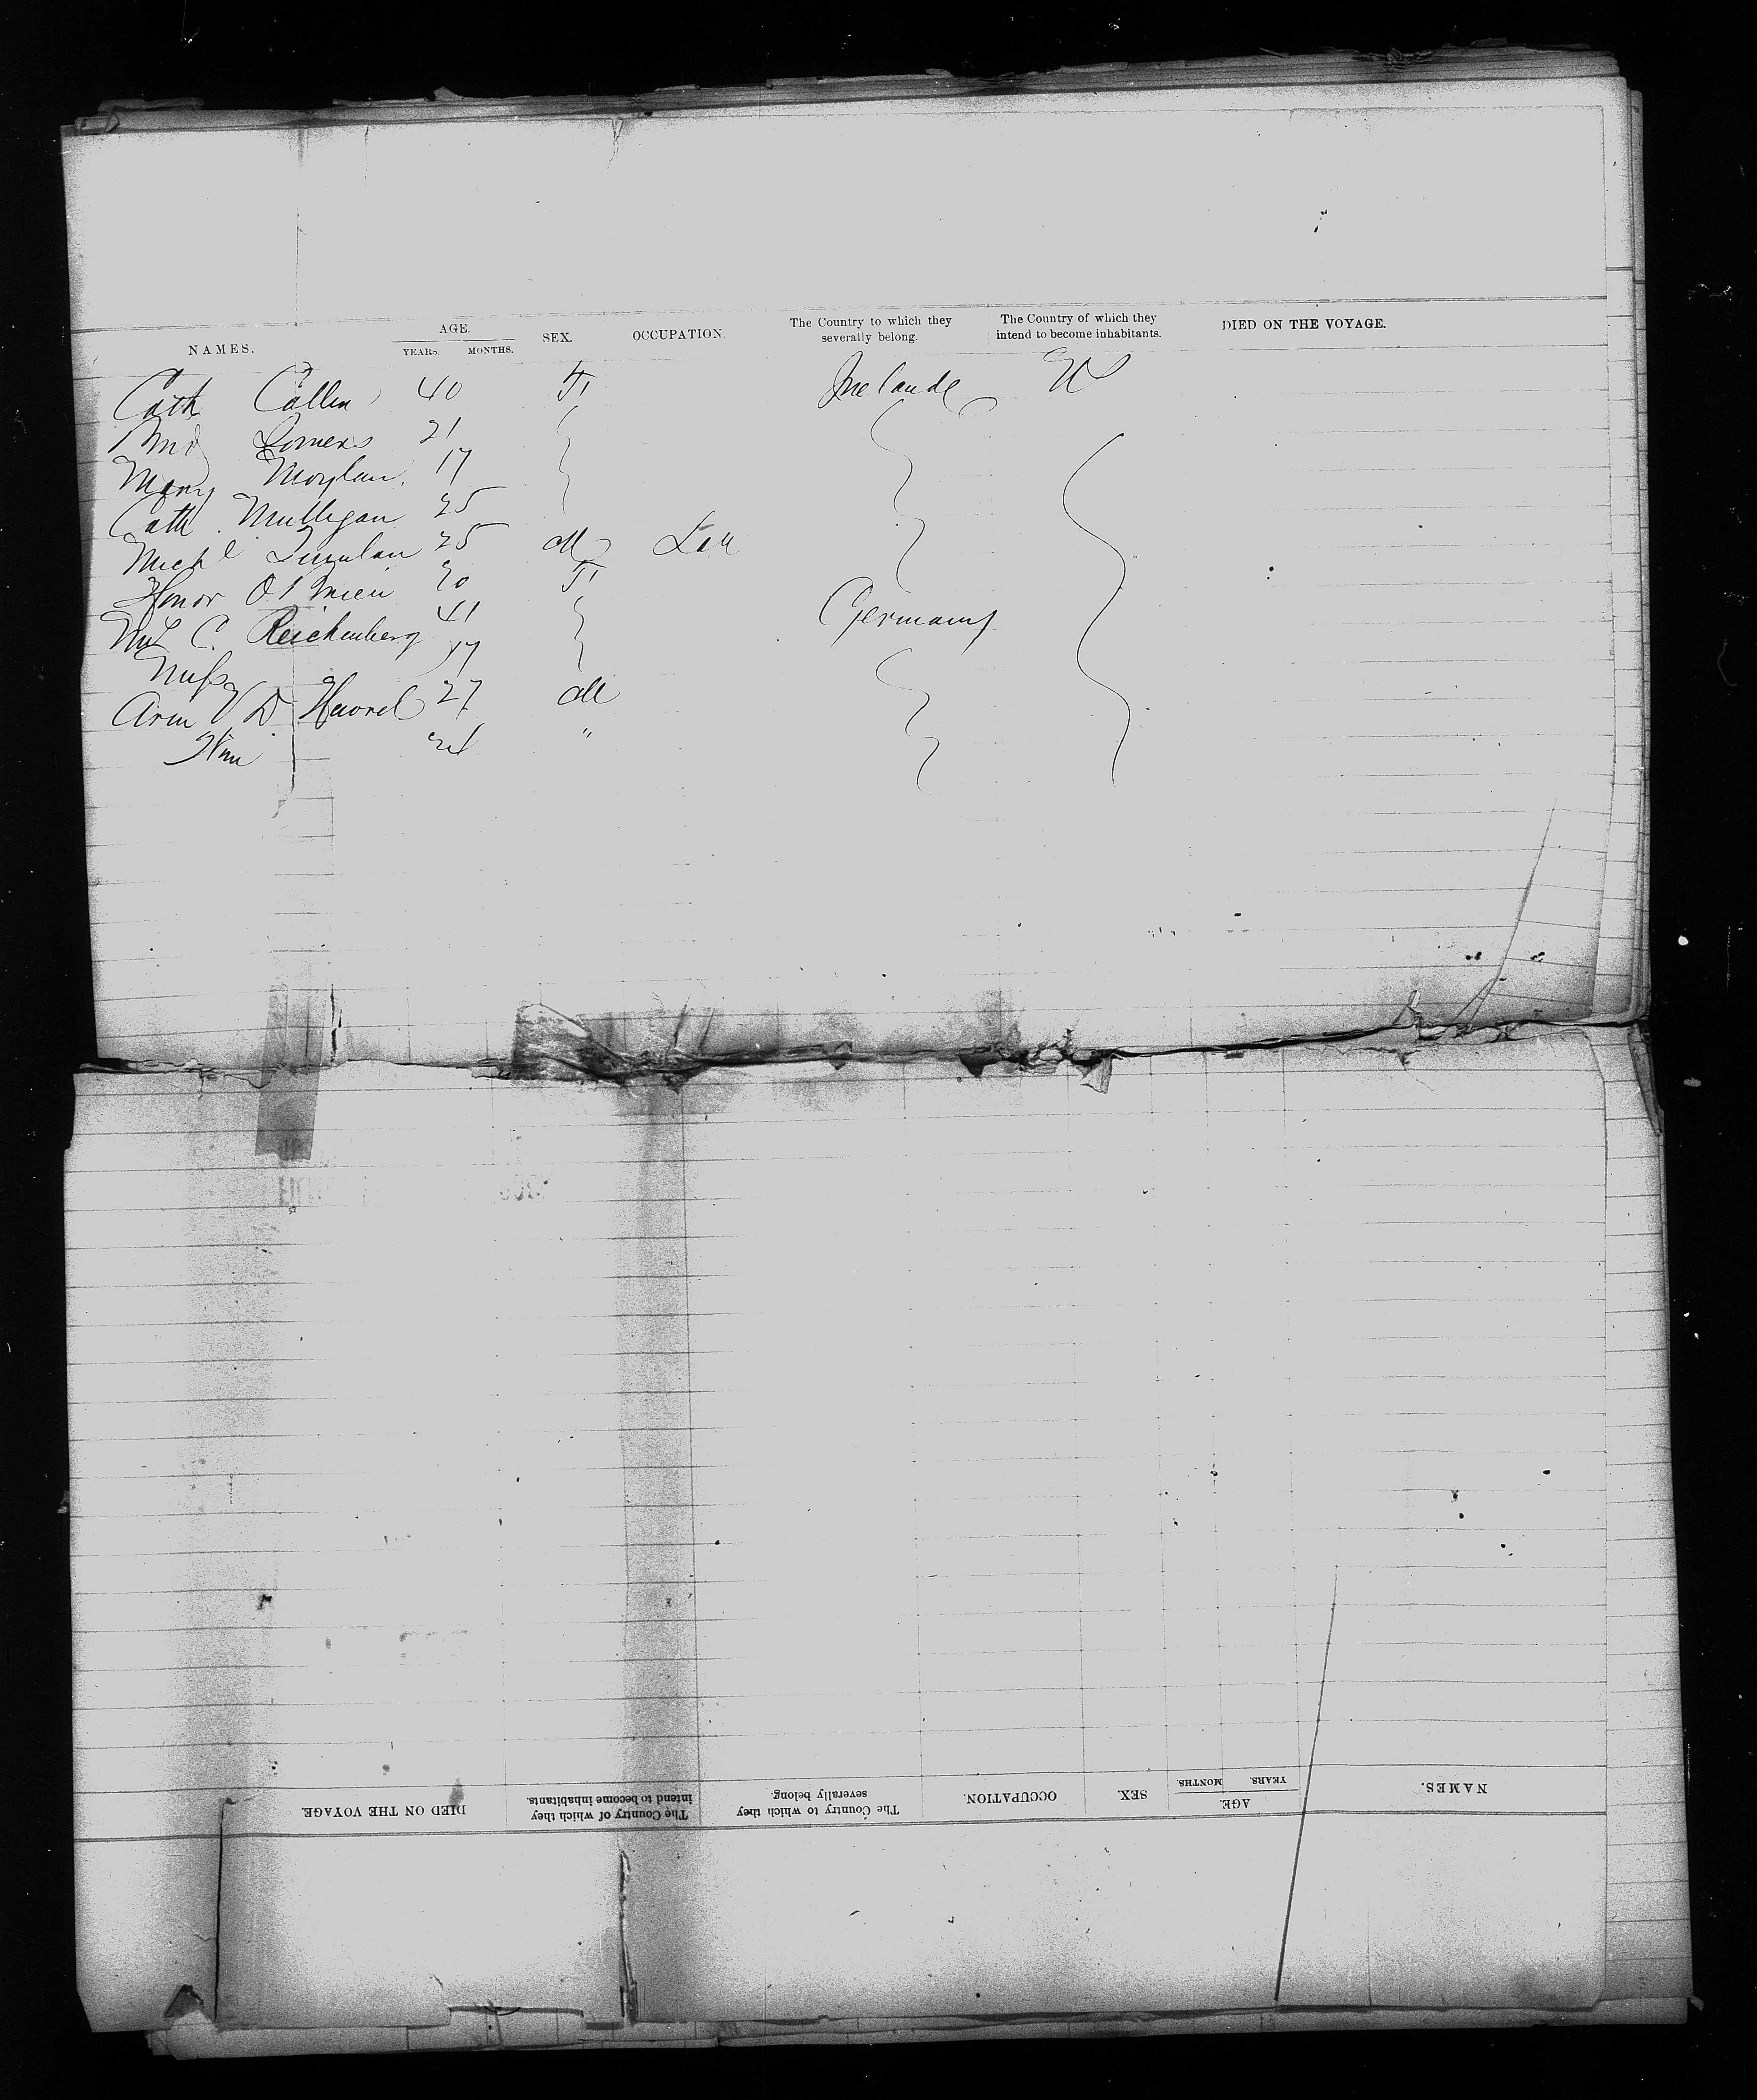 NAMES. AGE. YEARS. MONTHS. SEX. OCCUPATION. The Country to which they severally belong. The Country of which they intend to become inhabitants. DIED ON THE VOYAGE.
Cath Cullen 40 F Ireland US
Somers 21
Mary Moylan 17
Cath Mulligan 25
Michl Quinlan 25 M Lab
Honor O'Brien 20 F
C. Reichenberg 41 Germany
Miss 17
D 27 M
Wm "
NAMES. AGE. YEARS. MONTHS. SEX. OCCUPATION. The Country to which they severally belong. The Country of which they intend to become inhabitants. DIED ON THE VOYAGE.